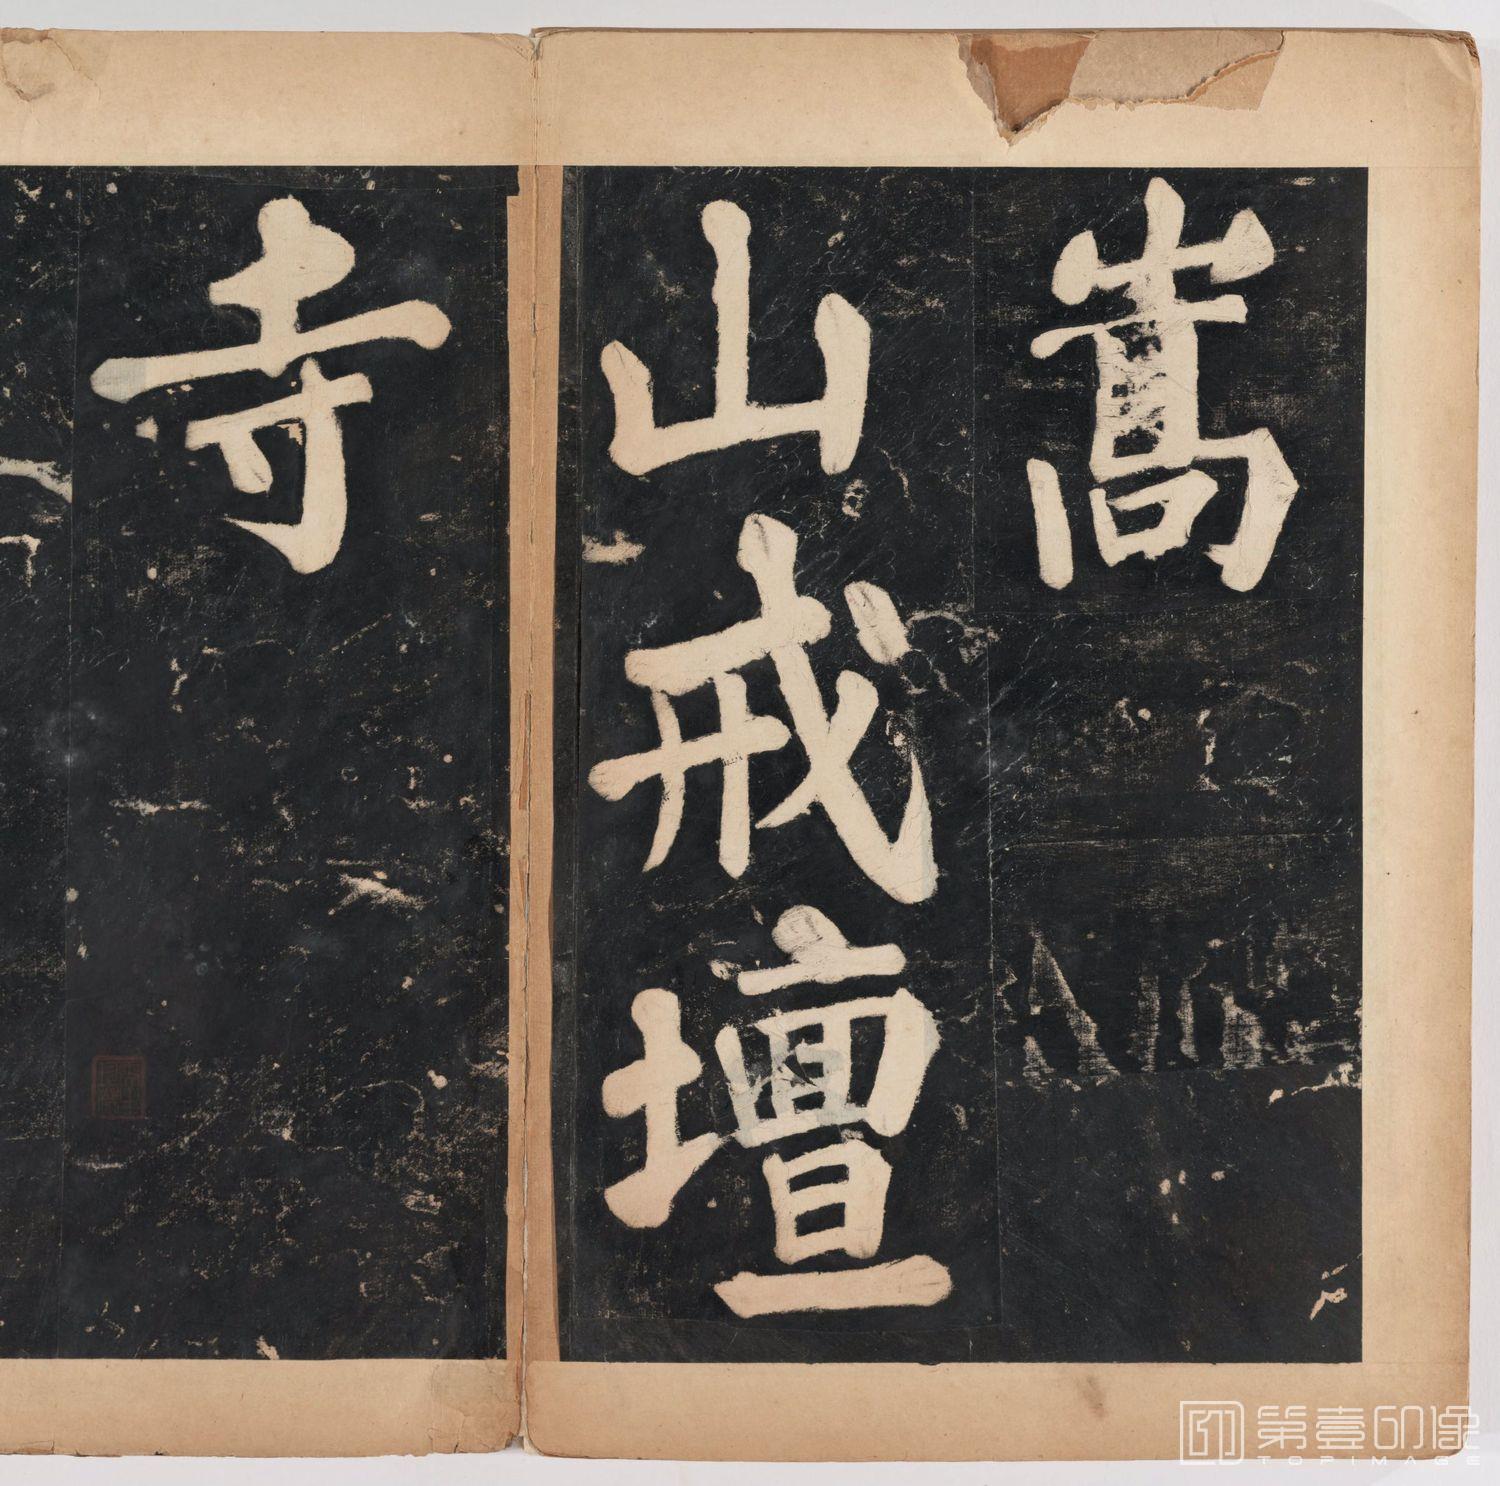 嵩
山戒壇
寺
第壹印像
TOPIMAGE